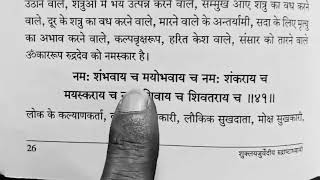 उठाने वाले, शत्रुओं में भय उत्पन्न करने वाले, सम्मुख आए शत्रु का वध करने
वाले, दूर के शत्रु का वध करने वाले, मारने वाले के अन्तर्यामी, सदा के लिए मृत्यु
का अभाव करने वाले, कल्पवृक्षरूप, हरित केश वाले, संसार को तारने वाले
ॐकाररूप रुद्रदेव को नमस्कार है।
नमः शंभवाय च मयोभवाय च नमः शंकराय च
मयस्कराय च शिवाय च शिवतराय च ॥४१॥
लोक के कल्याणकर्ता, कारी, लौकिक सुखदाता, मोक्ष सुखकारी,
26
शुक्लयजुर्वेदीय रुद्राष्टाध्यायी